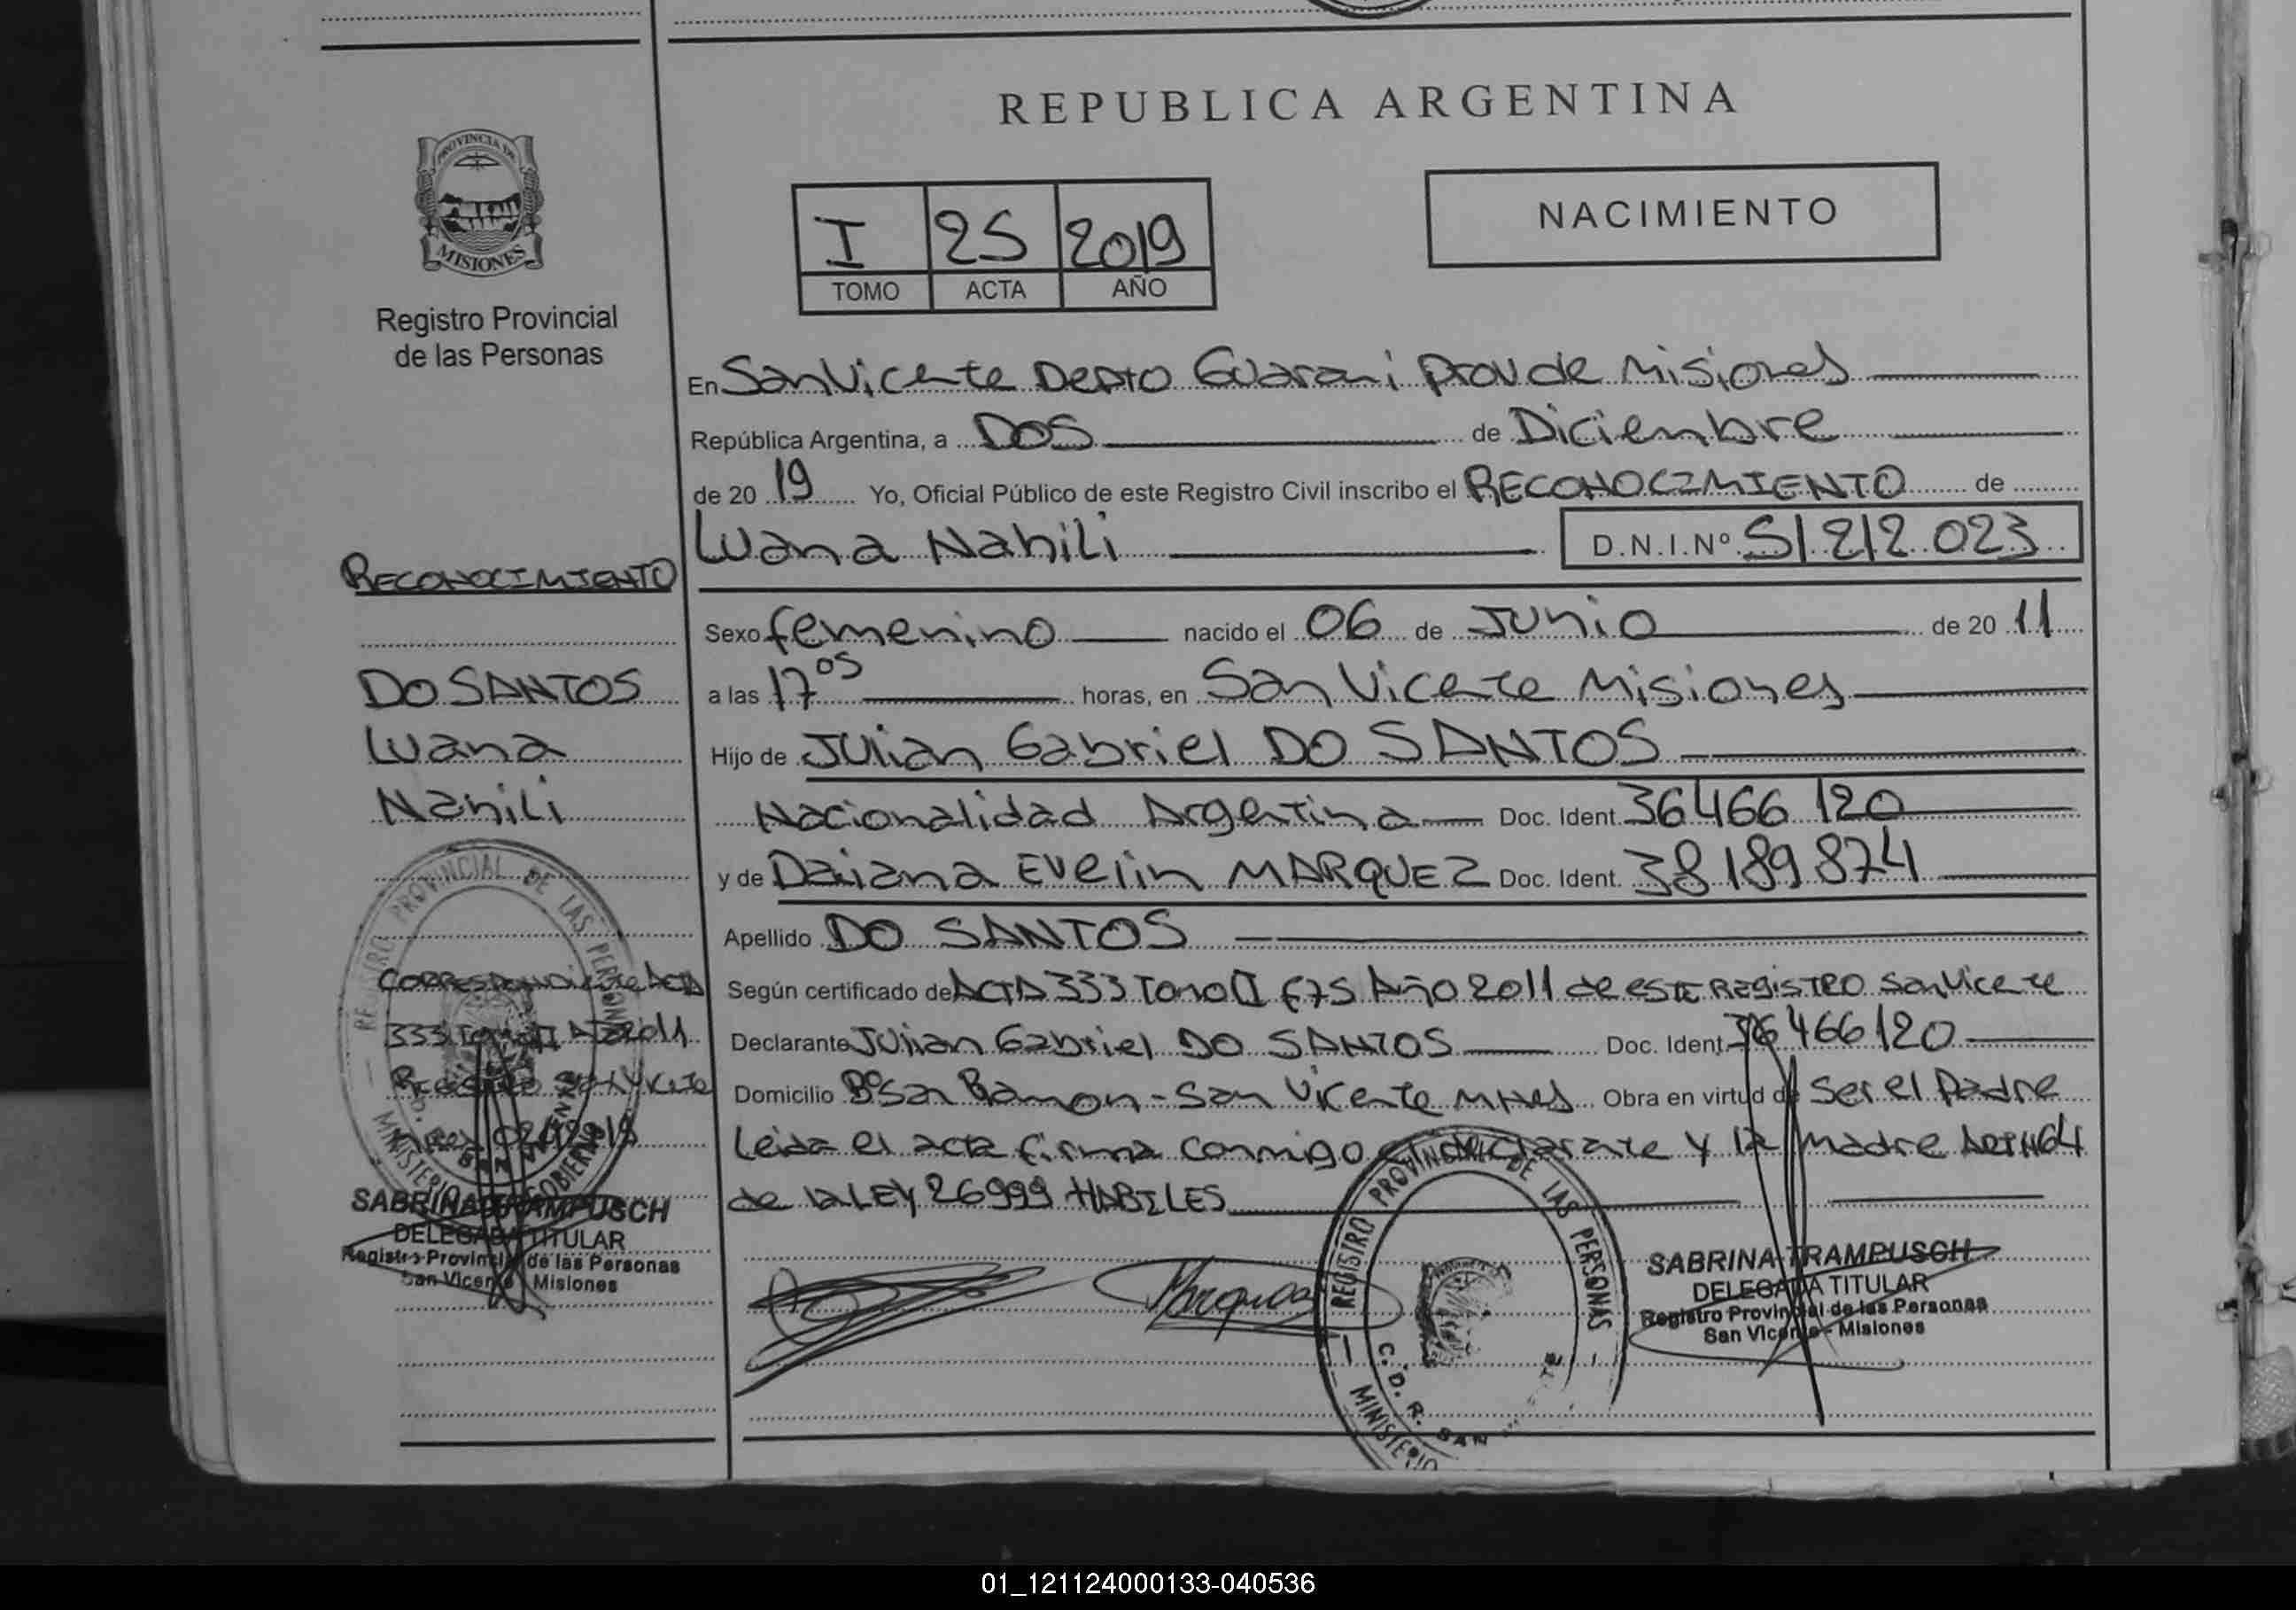 REPUBLICA ARGENTINA
PROVINCIA DE
MISIONES
Registro Provincial
de las Personas
NACIMIENTO
I 25 2019
TOMO ACTA AÑO
En San Vicente Depto Guarani Prov de Misiones
República Argentina, a Dos de Diciembre
de 20 19 Yo, Oficial Público de este Registro Civil inscribo el RECONOCIMIENTO de
Luana Nahili D.N.I.Nº 51.212.023
Sexo femenino nacido el 06 de Junio de 20 11
a las 17 05 horas, en San Vicente Misiones
Hijo de Julian Gabriel DO SANTOS
Nacionalidad Argentina Doc. Ident. 36466120
y de Daiana Evelin MARQUEZ Doc. Ident. 38189874
Apellido DO SANTOS
Según certificado de ACTA 333 Tomo II F75 Año 2011 de ESTE REgiSTRO San Vicente
Declarante Julian Gabriel DO SANTOS Doc. Ident. 36466120
Domicilio Bº San Ramon - San Vicente Mnes Obra en virtud de Ser el Padre
Leida el acta firma conmigo el declarante y la madre ART Nº64
de la LEY 26999 HABILES
RECONOCIMIENTO
DO SANTOS
Luana
Nahili
Correspondiente Acta
333 Tomo II Año 2011
Registro San Vicente
REGISTRO PROVINCIAL DE LAS PERSONAS
MINISTERIO GOBIERNO
SABRINA TRAMPUSCH
DELEGADA TITULAR
Registro Provincial de las Personas
San Vicente Misiones
Marquez
REGISTRO PROVINCIAL DE LAS PERSONAS
C.D.R. SAN
MINISTERIO
SABRINA TRAMPUSCH
DELEGADA TITULAR
Registro Provincial de las Personas
San Vicente - Misiones
01_121124000133-040536